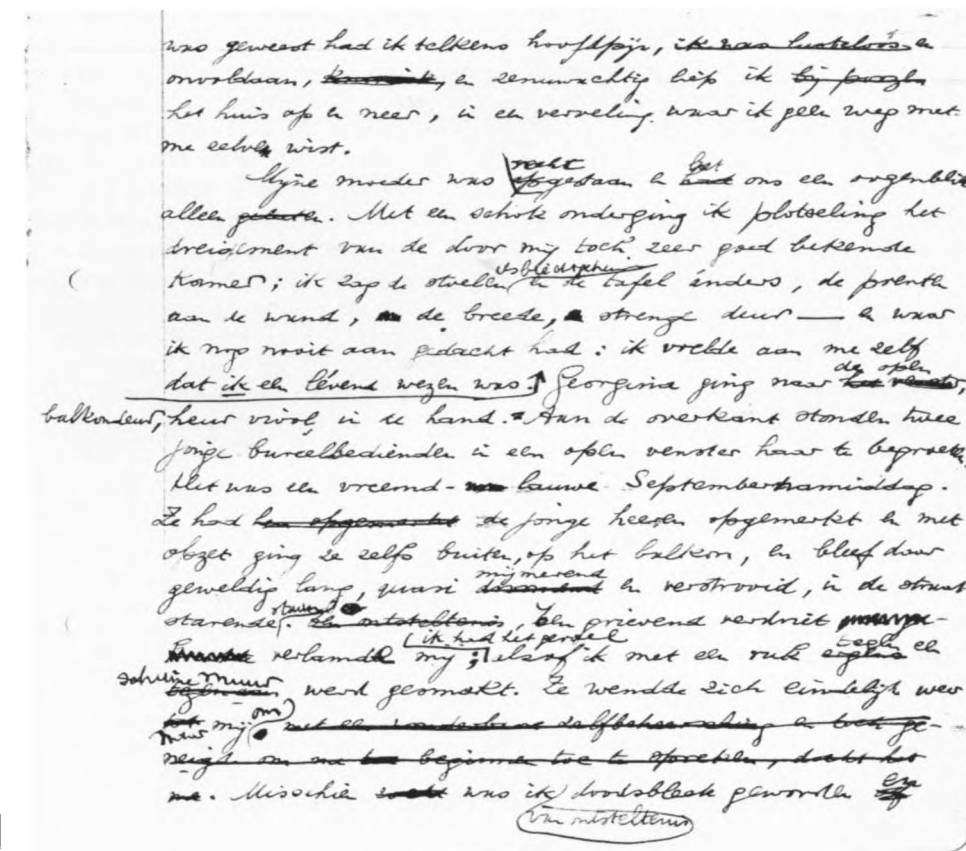 was geweest had ik telkens hoofdpijn, ik was lusteloos en
onvoldaan, en zenuwachtig liep ik bij poozen
het huis op en neer, in een verveling waar ik geen weg met
me zelve wist.
recht let
Mijne moeder was opgestaan en had ons een oogenblik
alleen gelaten. Met een schok onderging ik plotseling het
dreigement van de door mij toch zeer goed bekende
Kamer; ik zag de stoelen en de tafel ánders, de prenten
aan de wand, de breede, strenge deur — en waar
ik nog nooit aan gedacht had: ik voelde aan me zelf
de open
dat ik een lévend wezen was. Georgina ging naar het venster,
balkondeur, heur viool in de hand. Aan de overkant stonden twee
jonge bureelbedienden in een open venster haar te begroeten.
Het was een vreemd-lauwe Septembernamiddag.
Ze had hen opgemerkt de jonge heeren opgemerkt en met
opzet ging ze zelfs buiten, op het balkon, en bleef daar
mijmerend
geweldig lang, quasi en verstrooid, in de straat
starende. en ontsteltenis, Een grievend verdriet
ik had het gevoel tegen
verlamde mij; alsof ik met een ruk ergens een
schuine muur
tegen aan werd gesmakt. Ze wendde zich eindelijk weer
ons
naar mij met een wonderbare zelfbeheersching en toch ge-
neigd om me te beginnen toe te spreken, dacht het
me. Misschien was ik doodsbleek geworden en
van ontsteltenis